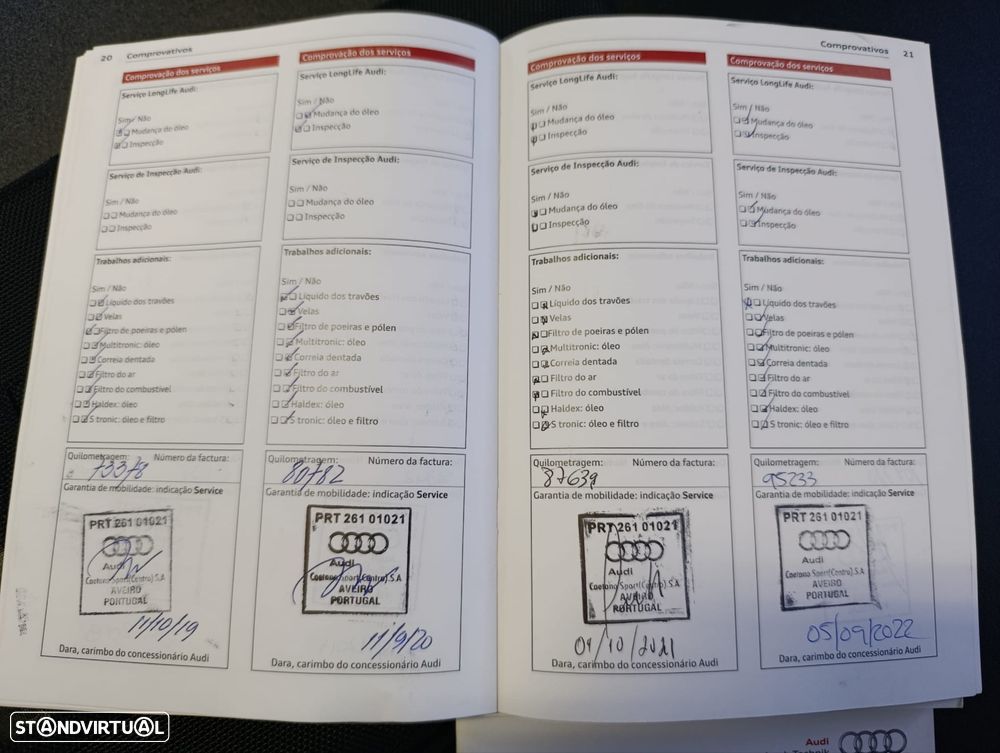 20 Comprovativos
Comprovação dos serviços
Serviço LongLife Audi:
Sim / Não
Mudança do óleo
Inspecção
Serviço de Inspecção Audi:
Sim / Não
Mudança do óleo
Inspecção
Trabalhos adicionais:
Sim / Não
Líquido dos travões
Velas
Filtro de poeiras e pólen
Multitronic: óleo
Correia dentada
Filtro do ar
Filtro do combustível
Haldex: óleo
S tronic: óleo e filtro
Quilometragem: Número da factura:
73378
Garantia de mobilidade: indicação Service
PRT 261 01021
Audi
Caetano Sport(Centro).S.A
AVEIRO
PORTUGAL
11/10/19
Dara, carimbo do concessionário Audi
Comprovação dos serviços
Serviço LongLife Audi:
Sim / Não
Mudança do óleo
Inspecção
Serviço de Inspecção Audi:
Sim / Não
Mudança do óleo
Inspecção
Trabalhos adicionais:
Sim / Não
Líquido dos travões
Velas
Filtro de poeiras e pólen
Multitronic: óleo
Correia dentada
Filtro do ar
Filtro do combustível
Haldex: óleo
S tronic: óleo e filtro
Quilometragem: Número da factura:
80782
Garantia de mobilidade: indicação Service
PRT 261 01021
Audi
Caetano Sport(Centro).S.A
AVEIRO
PORTUGAL
11/9/20
Dara, carimbo do concessionário Audi
Comprovativos 21
Comprovação dos serviços
Serviço LongLife Audi:
Sim / Não
Mudança do óleo
Inspecção
Serviço de Inspecção Audi:
Sim / Não
Mudança do óleo
Inspecção
Trabalhos adicionais:
Sim / Não
Líquido dos travões
Velas
Filtro de poeiras e pólen
Multitronic: óleo
Correia dentada
Filtro do ar
Filtro do combustível
Haldex: óleo
S tronic: óleo e filtro
Quilometragem: Número da factura:
87639
Garantia de mobilidade: indicação Service
PRT 261 01021
Audi
Caetano Sport(Centro).S.A
AVEIRO
PORTUGAL
Dara, carimbo do concessionário Audi
Comprovação dos serviços
Serviço LongLife Audi:
Sim / Não
Mudança do óleo
Inspecção
Serviço de Inspecção Audi:
Sim / Não
Mudança do óleo
Inspecção
Trabalhos adicionais:
Sim / Não
Líquido dos travões
Velas
Filtro de poeiras e pólen
Multitronic: óleo
Correia dentada
Filtro do ar
Filtro do combustível
Haldex: óleo
S tronic: óleo e filtro
Quilometragem: Número da factura:
95233
Garantia de mobilidade: indicação Service
PRT 261 01021
Audi
Caetano Sport(Centro).S.A
AVEIRO
PORTUGAL
05/09/2022
Dara, carimbo do concessionário Audi
Audi
STANDVIRTUAL